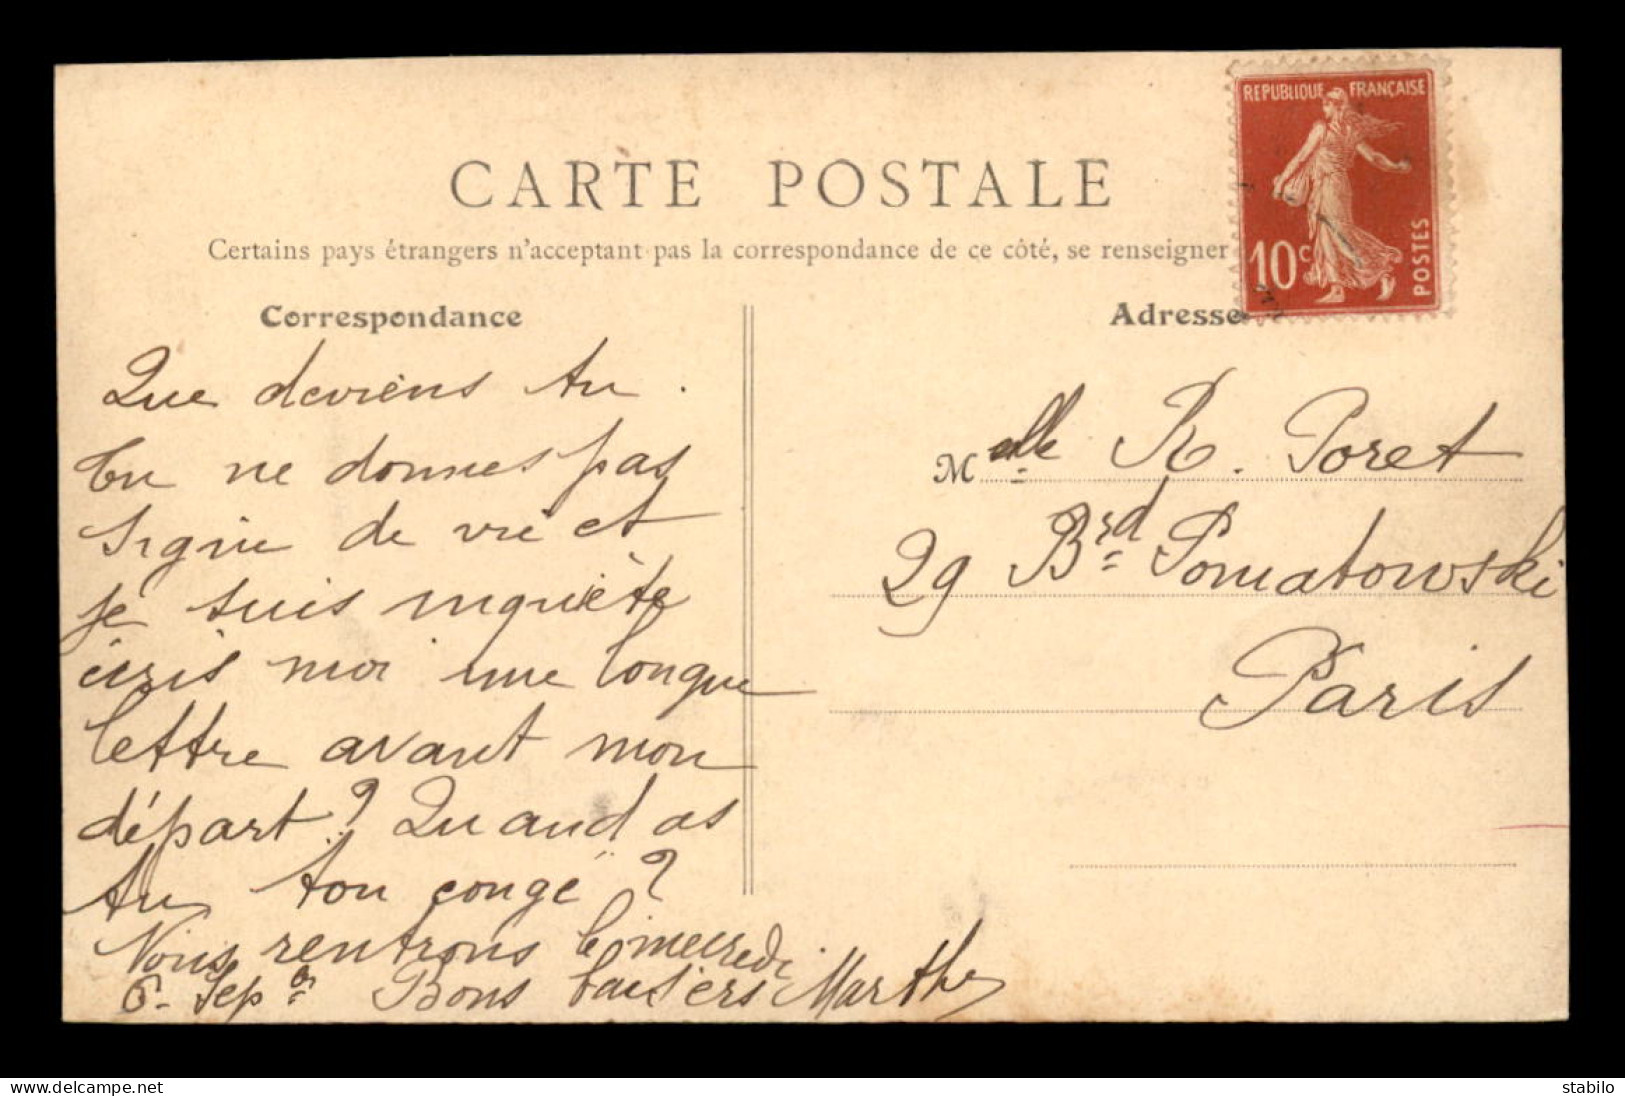 REPUBLIQUE FRANÇAISE
10c
POSTES
CARTE POSTALE
Certains pays étrangers n'acceptant pas la correspondance de ce côté, se renseigner
Correspondance
Que deviens tu.
Tu ne donnes pas
signe de vie et
je suis inquiète
écris moi une longue
lettre avant mon
départ? Quand as
tu ton congé?
Nous rentrons le mercredi
6 Sepbre Bons baisers Marthe
Adresse
Melle R. Poret
29 Brd Poniatowski
Paris
www.delcampe.net
stabilo